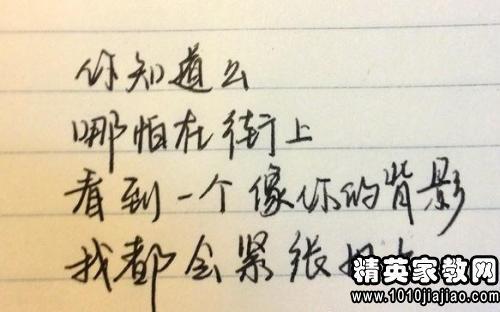 你知道么
哪怕在街上
看到一个像你的背影
我都会紧张
精英家教网
www.1010jiajiao.com